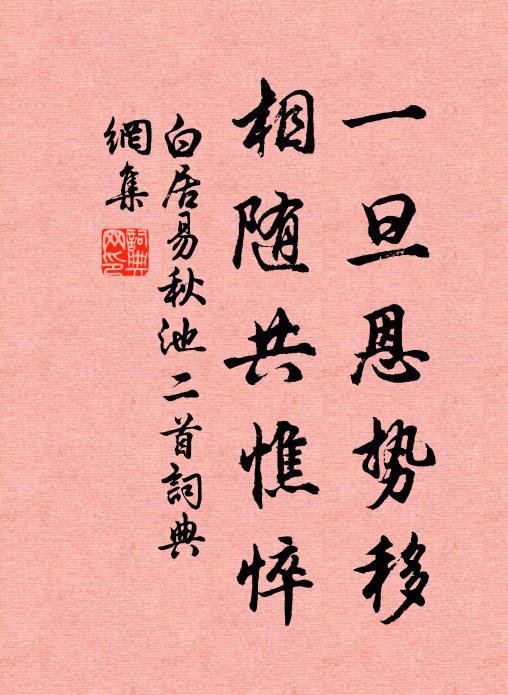 一旦恩势移
相随共憔悴
白居易秋池二首詞典
網集
詞典
网印